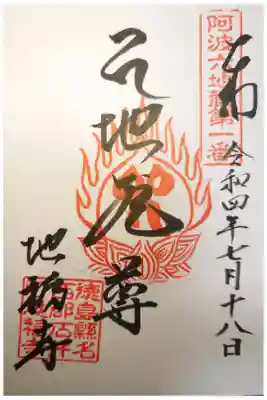 奉拝
阿波六地蔵第一番
令和四年七月十八日
地蔵尊
地福寺
徳島縣名
西郡石井
地福寺